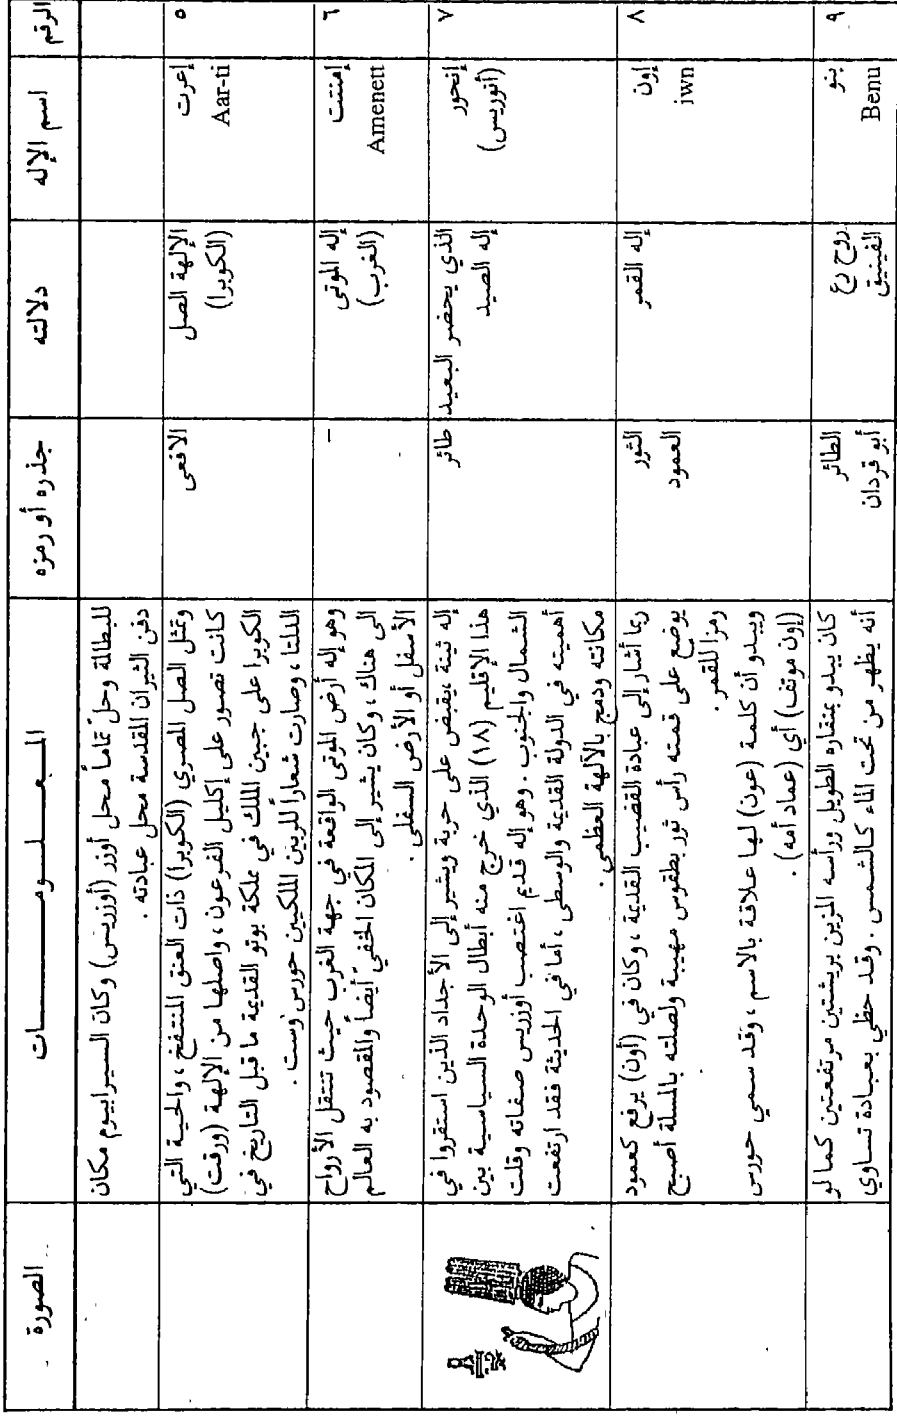 الرقم
اسم الإله
دلالته
جذره أو رمزه
المعلومات
الصورة
للبطالة وحلّ تماماً محل أوزر (أوزريس) وكان السيرابيوم مكان
دفن الثيران المقدسة محل عبادته .
٥
إعرت
Aar-ti
الإلهة الصل
(الكوبرا)
الافعى
وتمثل الصل المصري (الكوبرا) ذات العنق المنتفخ ، والحية التي
كانت تصور على إكليل الفرعون ، واصلها من الإلهة (ورقت)
الكوبرا على جبين الملك في مملكة بوتو القديمة ما قبل التاريخ في
الدلتا ، وصارت شعاراً للربين الملكيين حورس وست .
٦
إمنتت
Amenett
إله الموتى
(الغرب)
–
وهو إله أرض الموتى الواقعة في جهة الغرب حيث تنتقل الأرواح
الى هناك ، وكان يشير إلى المكان الخفيّ أيضاً والمقصود به العالم
الأسفل أو الأرض السفلى .
٧
إنحور
(أنوريس)
الذي يحضر البعيد
إله الصيد
طائر
إله ثينة ، يقبض على حربة ويشير إلى الأجداد الذين استقروا في
هذا الإقليم (١٨) الذي خرج منه أبطال الوحدة السياسية بين
الشمال والجنوب . وهو إله قديم اغتصب أوزريس صفاته وقلت
أهميته في الدولة القديمة والوسطى ، أما في الحديثة فقد ارتفعت
مكانته ودمج بالآلهة العظمى .
٨
إون
iwn
إله القمر
الثور
العمود
ربما أشار إلى عبادة القضيب القديمة ، وكان في (أون) يرفع كعمود
يوضع على قمته رأس ثور بطقوس مهيبة ولصلته بالمسلة أصبح
رمزا للقمر .
ويبدو أن كلمة (عون) لها علاقة بالاسم ، وقد سمي حورس
(إون موتف) أي (عماد أمه) .
٩
بنو
Benu
روح رع
الفينيق
الطائر
أبو قردان
كان يبدو بمنقاره الطويل ورأسه المزين بريشتين مرتفعتين كما لو
أنه يظهر من تحت الماء كالشمس . وقد حظي بعبادة تساوي